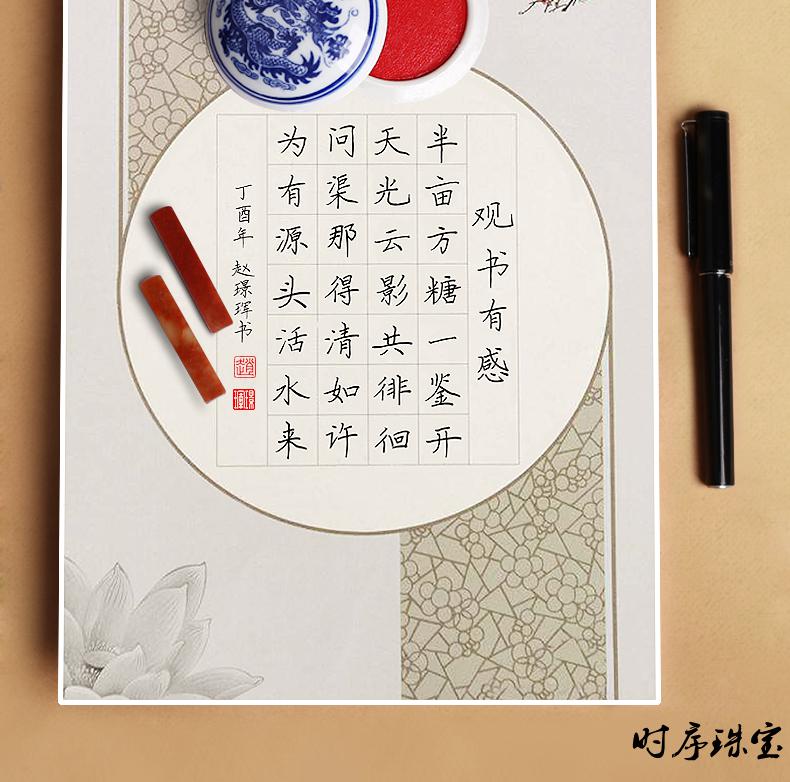 观书有感
半亩方糖一鉴开
天光云影共徘徊
问渠那得清如许
为有源头活水来
丁酉年 赵璟珲书
时序珠宝